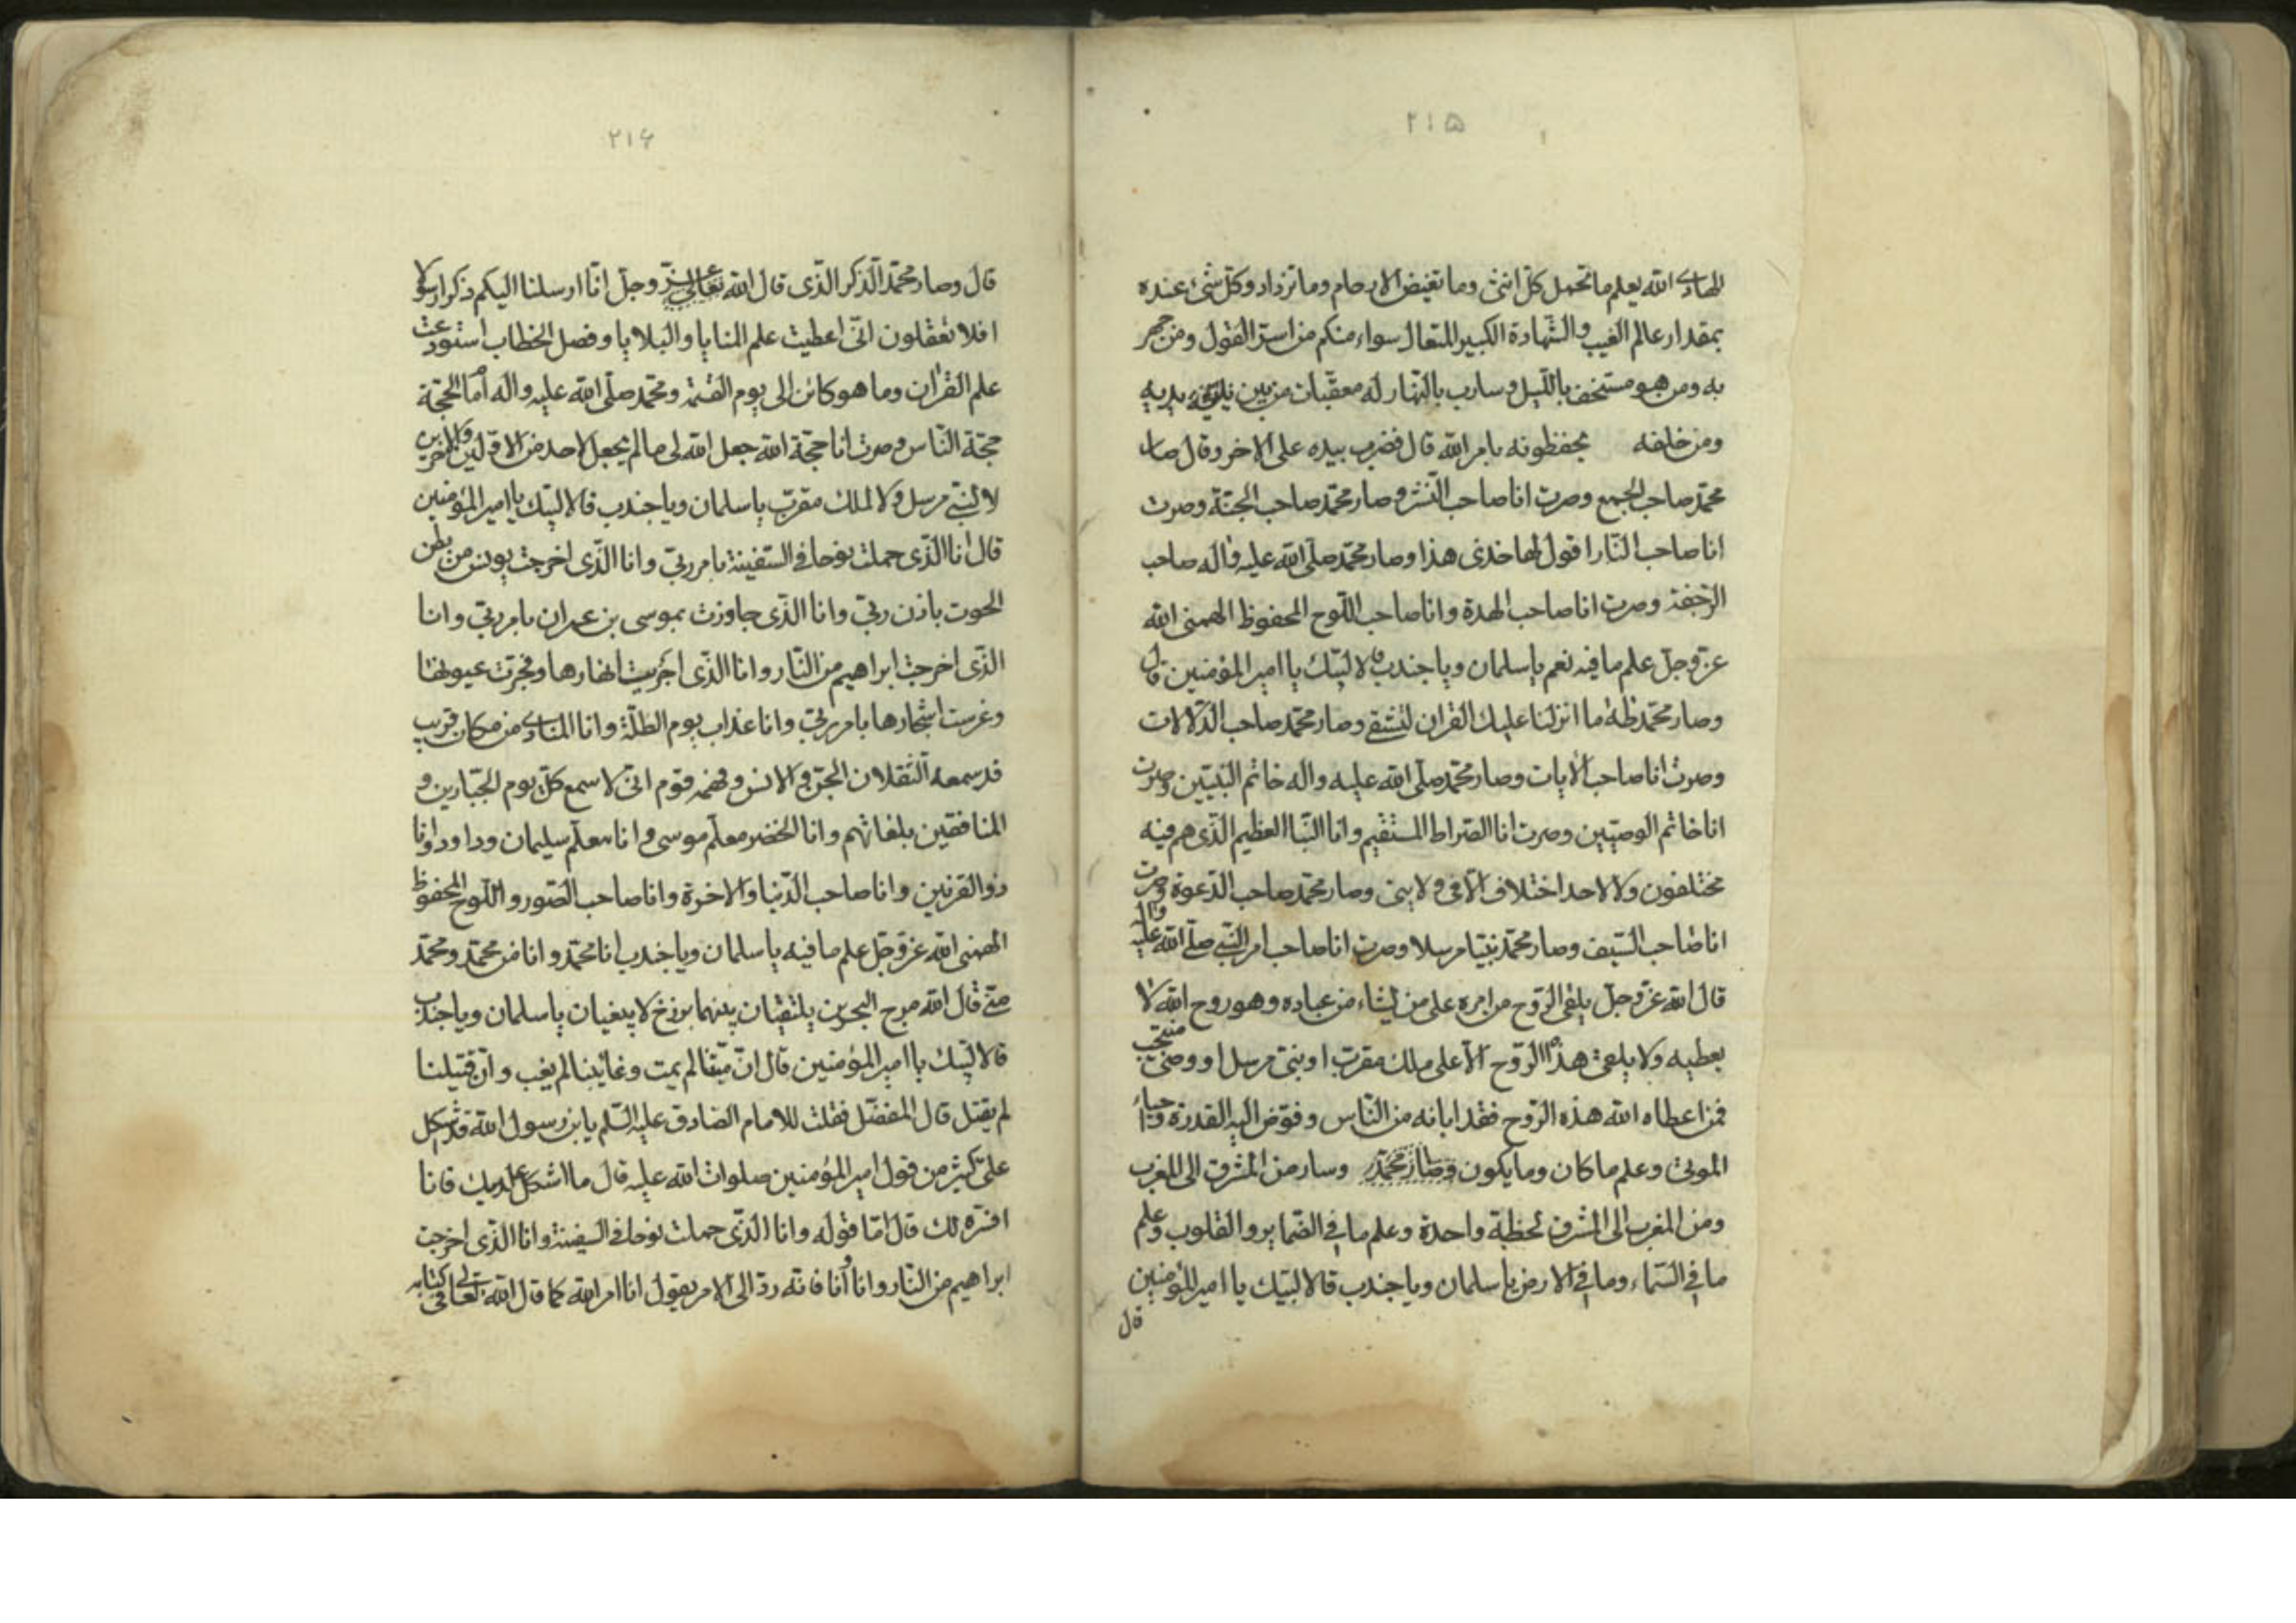 ٢١۵
الهادی الله یعلم ما تحمل کل انثی وما تغیض الارحام وما تزداد وکل شیء عنده
بمقدار عالم الغیب والشهادة الکبیر المتعال سواء منکم من اسر القول ومن جهر
به ومن هو مستخف باللیل وسارب بالنهار له معقبات من بین یدیه
ومن خلفه یحفظونه بامر الله قال فضرب بیده علی الاخر وقال صار
محمد صاحب الجمع وصرت انا صاحب النشر وصار محمد صاحب الجنة وصرت
انا صاحب النار اقول لها خذی هذا وصار محمد صلی الله علیه واله صاحب
الرجفة وصرت انا صاحب الهدة وانا صاحب اللوح المحفوظ الهمنی الله
عز وجل علم ما فیه نعم یا سلمان ویا جندب قالا لبیک یا امیر المؤمنین قال
وصار محمد طه ما انزلنا علیک القران لتشقی وصار محمد صاحب الدلالات
وصرت انا صاحب الایات وصار محمد صلی الله علیه واله خاتم النبیین وصرت
انا خاتم الوصیین وصرت انا الصراط المستقیم وانا النبا العظیم الذی هم فیه
مختلفون ولا لاحد اختلاف الا فی ولایتی وصار محمد صاحب الدعوة وصرت
انا صاحب السیف وصار محمد نبیا مرسلا وصرت انا صاحب امر النبی صلی الله علیه واله
قال الله عز وجل یلقی الروح من امره علی من یشاء من عباده وهو روح الله لا
یعطیه ولا یلقی هذا الروح الا علی ملک مقرب او نبی مرسل او وصی منتجب
فمن اعطاه الله هذه الروح فقد ابانه من الناس وفوض الیه القدرة واحیاء
الموتی وعلم ما کان وما یکون وصار محمد وسار من المشرق الی المغرب
ومن المغرب الی المشرق لحظة واحدة وعلم ما فی الضمایر والقلوب وعلم
ما فی السماء وما فی الارض یا سلمان ویا جندب قالا لبیک یا امیر المؤمنین
قال
٢١۶
قال وصار محمد الذکر الذی قال الله عز وجل انا ارسلنا الیکم ذکرا رسولا
افلا تعقلون انی اعطیت علم المنایا والبلایا وفصل الخطاب استودعت
علم القران وما هو کائن الی یوم القیمة ومحمد صلی الله علیه واله اقام الحجة
حجة الناس وصرت انا حجة الله جعل الله لی ما لم یجعل لاحد من الاولین والاخرین
لا لنبی مرسل ولا لملک مقرب یا سلمان ویا جندب قالا لبیک یا امیر المؤمنین
قال انا الذی حملت نوحا فی السفینة بامر ربی وانا الذی اخرجت یونس من بطن
الحوت باذن ربی وانا الذی جاوزت بموسی بن عمران بامر ربی وانا
الذی اخرجت ابراهیم من النار وانا الذی اجریت انهارها وفجرت عیونها
وغرست اشجارها بامر ربی وانا عذاب یوم الظلة وانا المنادی من مکان قریب
قد سمعه الثقلان الجن والانس وفهمه قوم انی لاسمع کل یوم الجبارین و
المنافقین بلغاتهم وانا الخضر معلم موسی وانا معلم سلیمان وداود وانا
ذو القرنین وانا صاحب الدنیا والاخرة وانا صاحب الصور واللوح المحفوظ
الهمنی الله عز وجل علم ما فیه یا سلمان ویا جندب انا محمد وانا من محمد ومحمد
منی قال الله مرج البحرین یلتقیان بینهما برزخ لا یبغیان یا سلمان ویا جندب
قالا لبیک یا امیر المؤمنین قال ان میتنا لم یمت وغائبنا لم یغب وان قتیلنا
لم یقتل قال المفضل فقلت للامام الصادق علیه السلم یا بن رسول الله قد اشکل
علی کثیر من قول امیر المؤمنین صلوات الله علیه قال ما اشکل علیک فانا
افسره لک قال اما قوله وانا الذی حملت نوحا فی السفینة وانا الذی اخرجت
ابراهیم من النار وانا وانا فانه رد الی الامر یقول انا امر الله کما قال الله تعالی فی کتابه